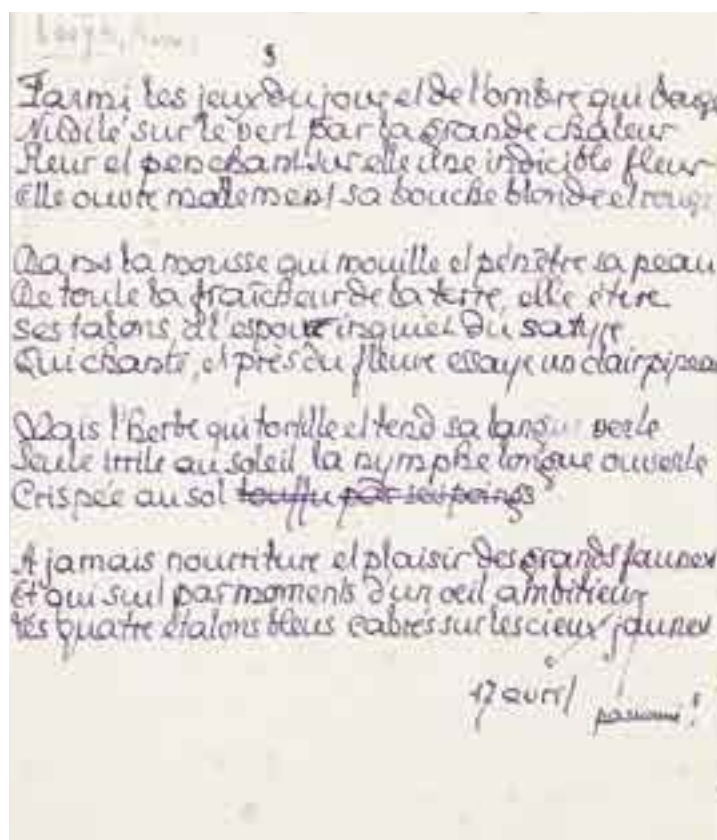 s
Parmi les jeux du jour et de l'ombre qui boug
Nudité sur le vert par la grande chaleur
Fleur et penchant sur elle une indicible fleur
Elle ouvre mollement sa bouche blonde et rouge
Dans la mousse qui mouille et pénètre sa peau
De toute la fraîcheur de la terre, elle étire
ses talons, à l'espoir inquiet du satyre
Qui chante, et près du fleuve essaye un clair pipeau
Mais l'herbe qui tortille et tend sa langue verte
Seule irrite au soleil la nymphe longue ouverte
Crispée au sol touffu par ses poings
A jamais nourriture et plaisir des grands faunes
Et qui suit par moments d'un oeil ambitieux
Les quatre étalons bleus cabrés sur les cieux jaunes
17 avril